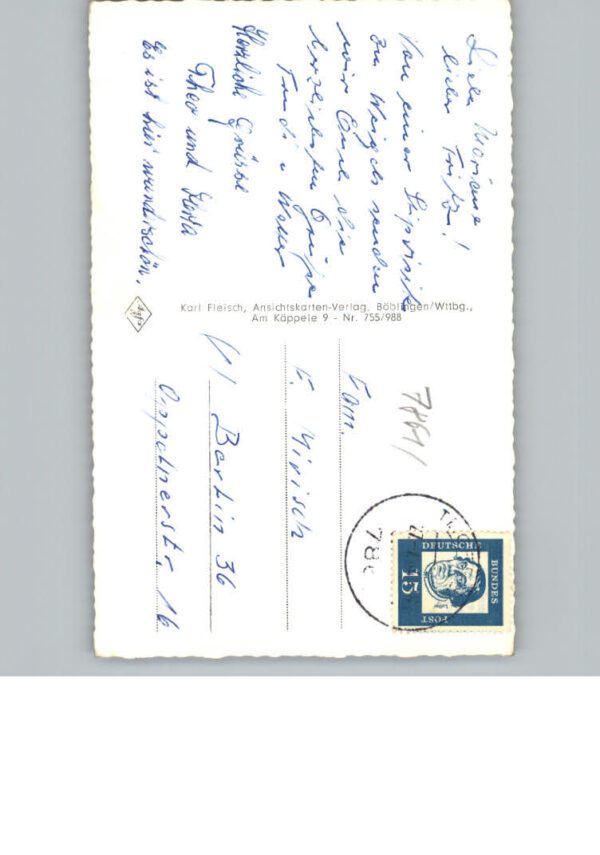 Liebe Mariane
lieber Fritz!
Von einer
zu Weigels senden
wir Euch die
herzlichsten Grüße
Trudi u
Herzliche Grüsse
Theo und Herta
Es ist hier wunderschön.
Karl Fleisch, Ansichtskarten-Verlag, Böblingen/Wttbg.,
Am Käppele 9 - Nr. 755/988
Fam.
E. Mirisch
1/ Berlin 36
Oppelnerstr. 16
DEUTSCHE
BUNDES
POST
15